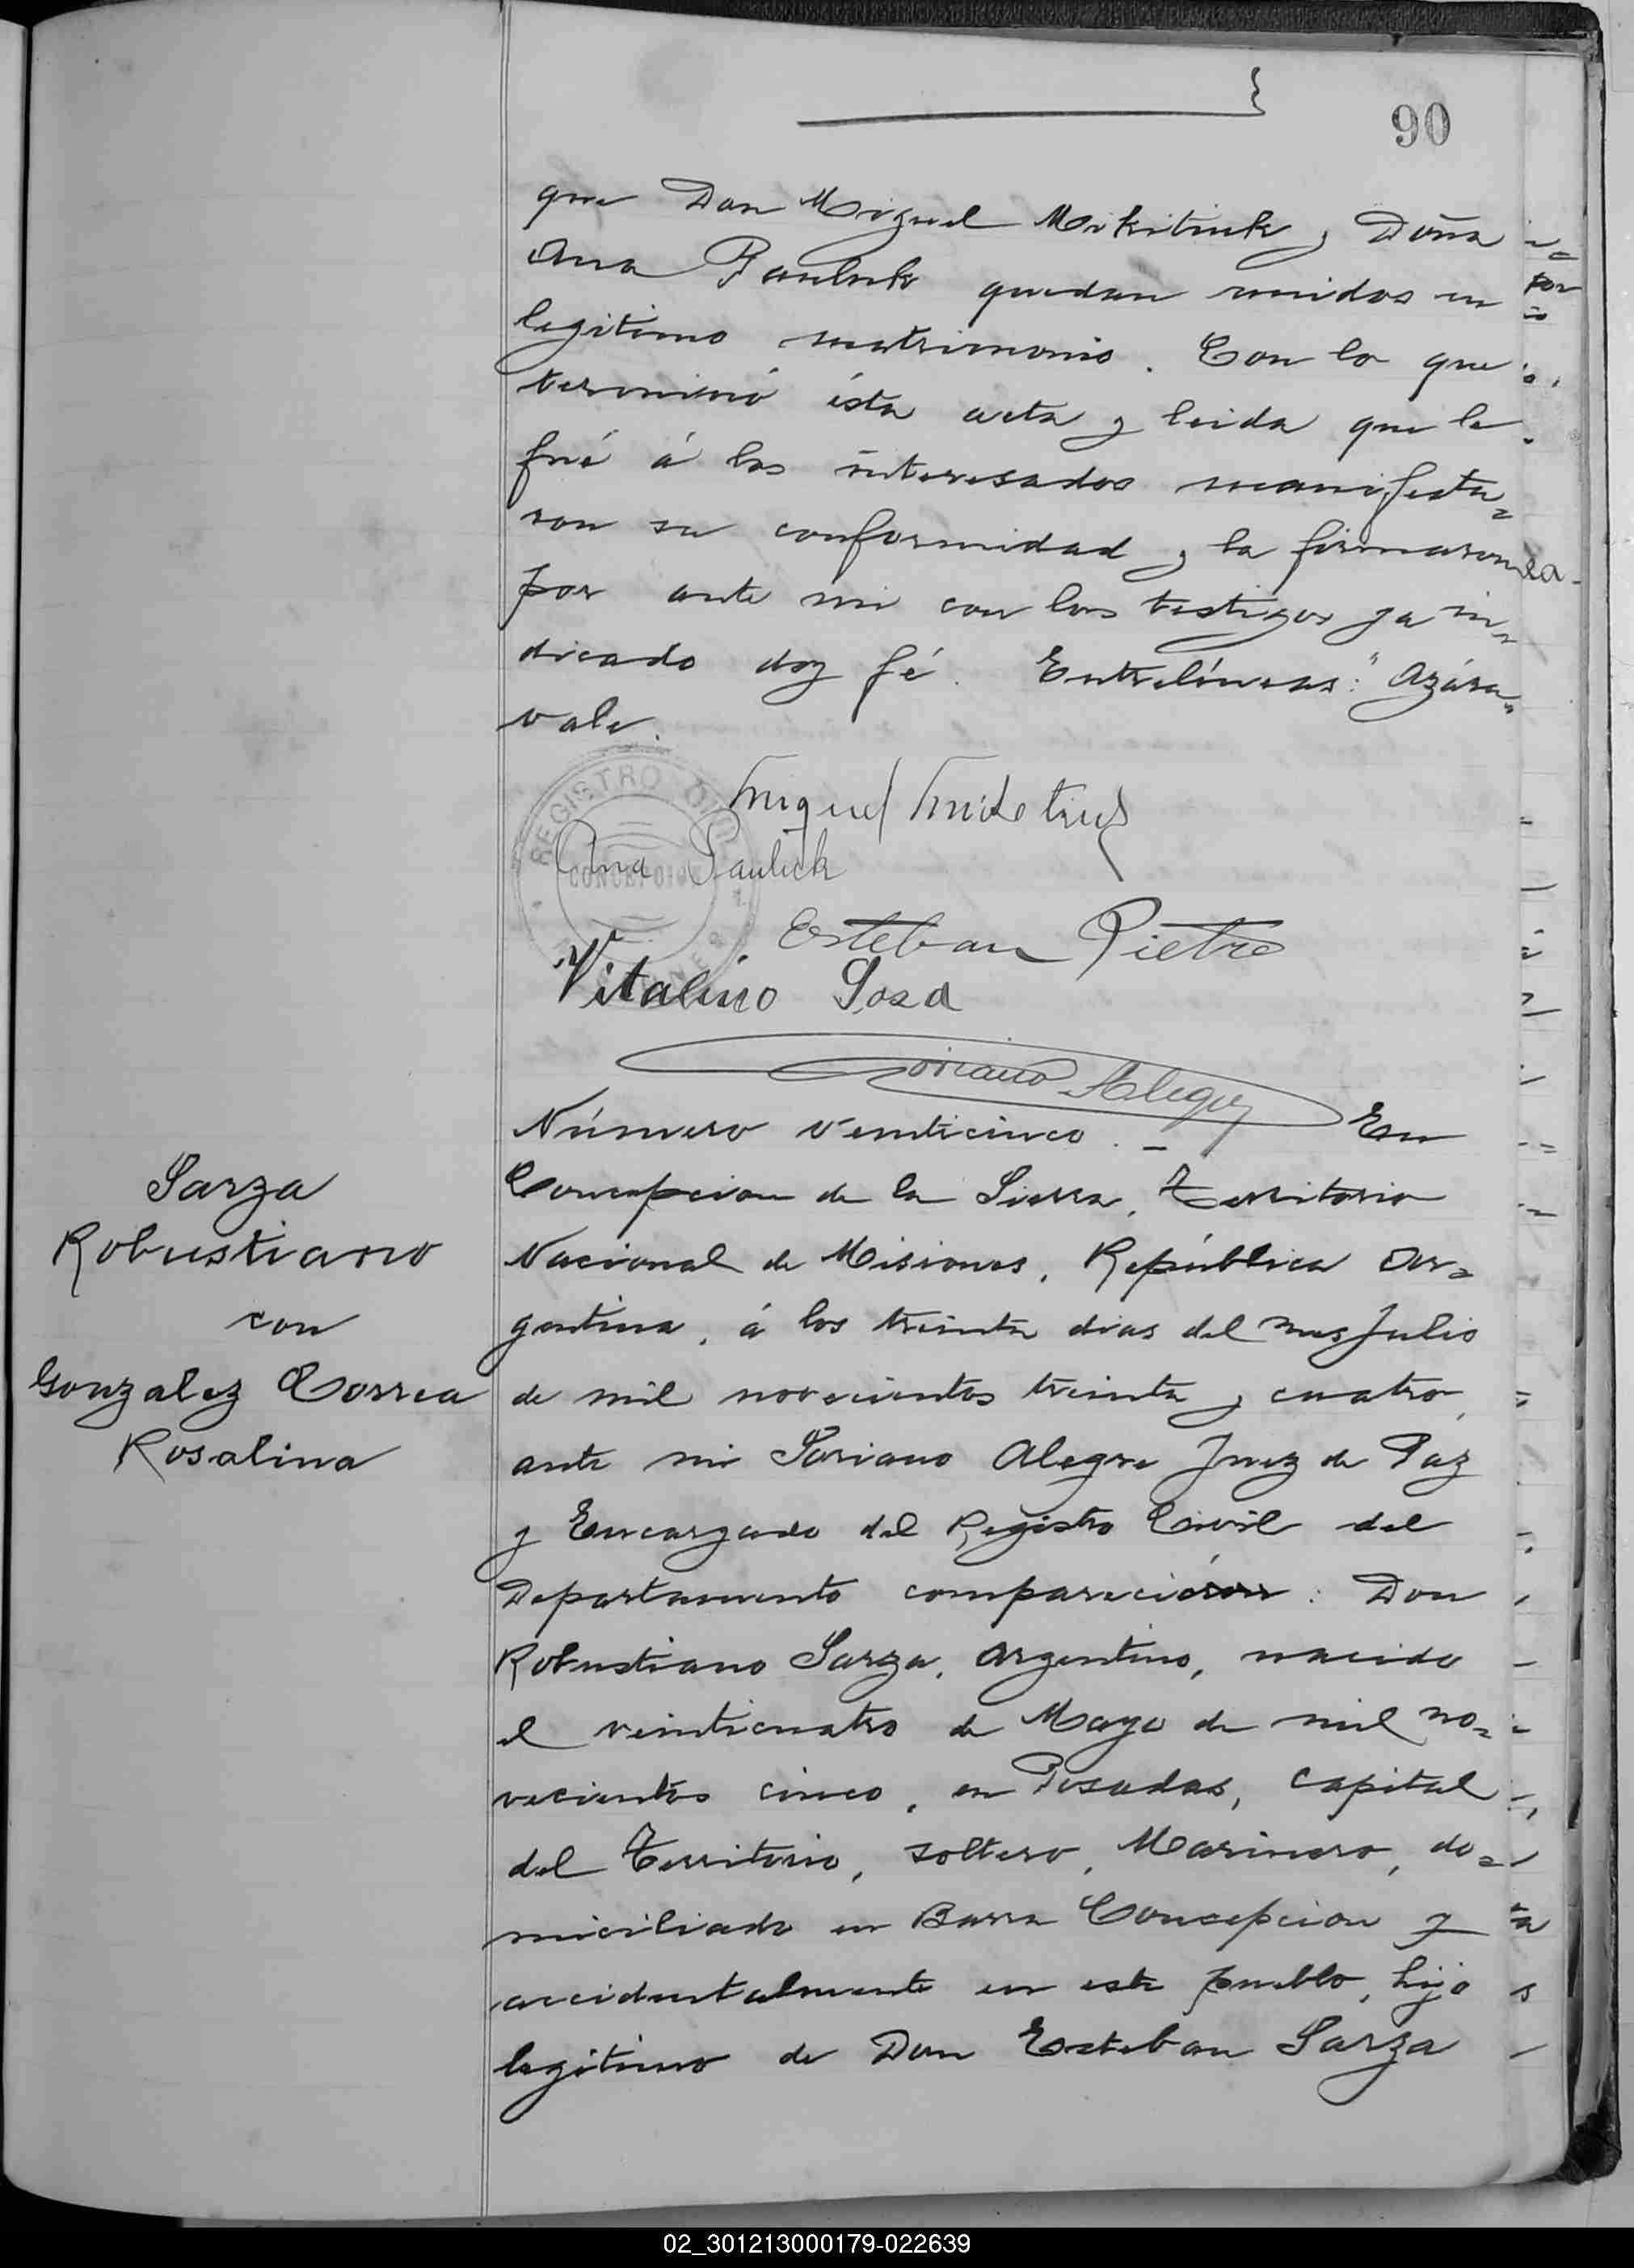 90
que Don Miguel Mikitiuk y Doña
Ana Pauluk quedan unidos en
legitimo matrimonio. Con lo que
terminó ésta acta y leida que le
fué á los interesados manifesta=
ron su conformidad y la firmaron
por ante mi con los testigos ya in=
dicado doy fé. Entrelíneas: "Azára"
vale.
REGISTRO CIVIL
CONCEPCION
Miguel
Ana Pauluk
Esteban Pietro
Vitalino Sosa
Soriano Alegre
Número veinticinco. - En
Concepcion de la Sierra, Territorio
Nacional de Misiones, República Ar=
gentina, á los treinta dias del mes Julio
de mil novecientos treinta y cuatro,
ante mi Soriano Alegre Juez de Paz
y Encargado del Registro Civil del
Departamento comparecieron: Don
Robustiano Sarza, Argentino, nacido
el veinticuatro de Mayo de mil no=
vecientos cinco, en Posadas, Capital
del Territorio, soltero, Marinero, do=
miciliado en Barra Concepcion y
accidentalmente en este pueblo, hijo
legitimo de Don Esteban Sarza
Sarza
Robustiano
con
Gonzalez Correa
Rosalina
02_301213000179-022639